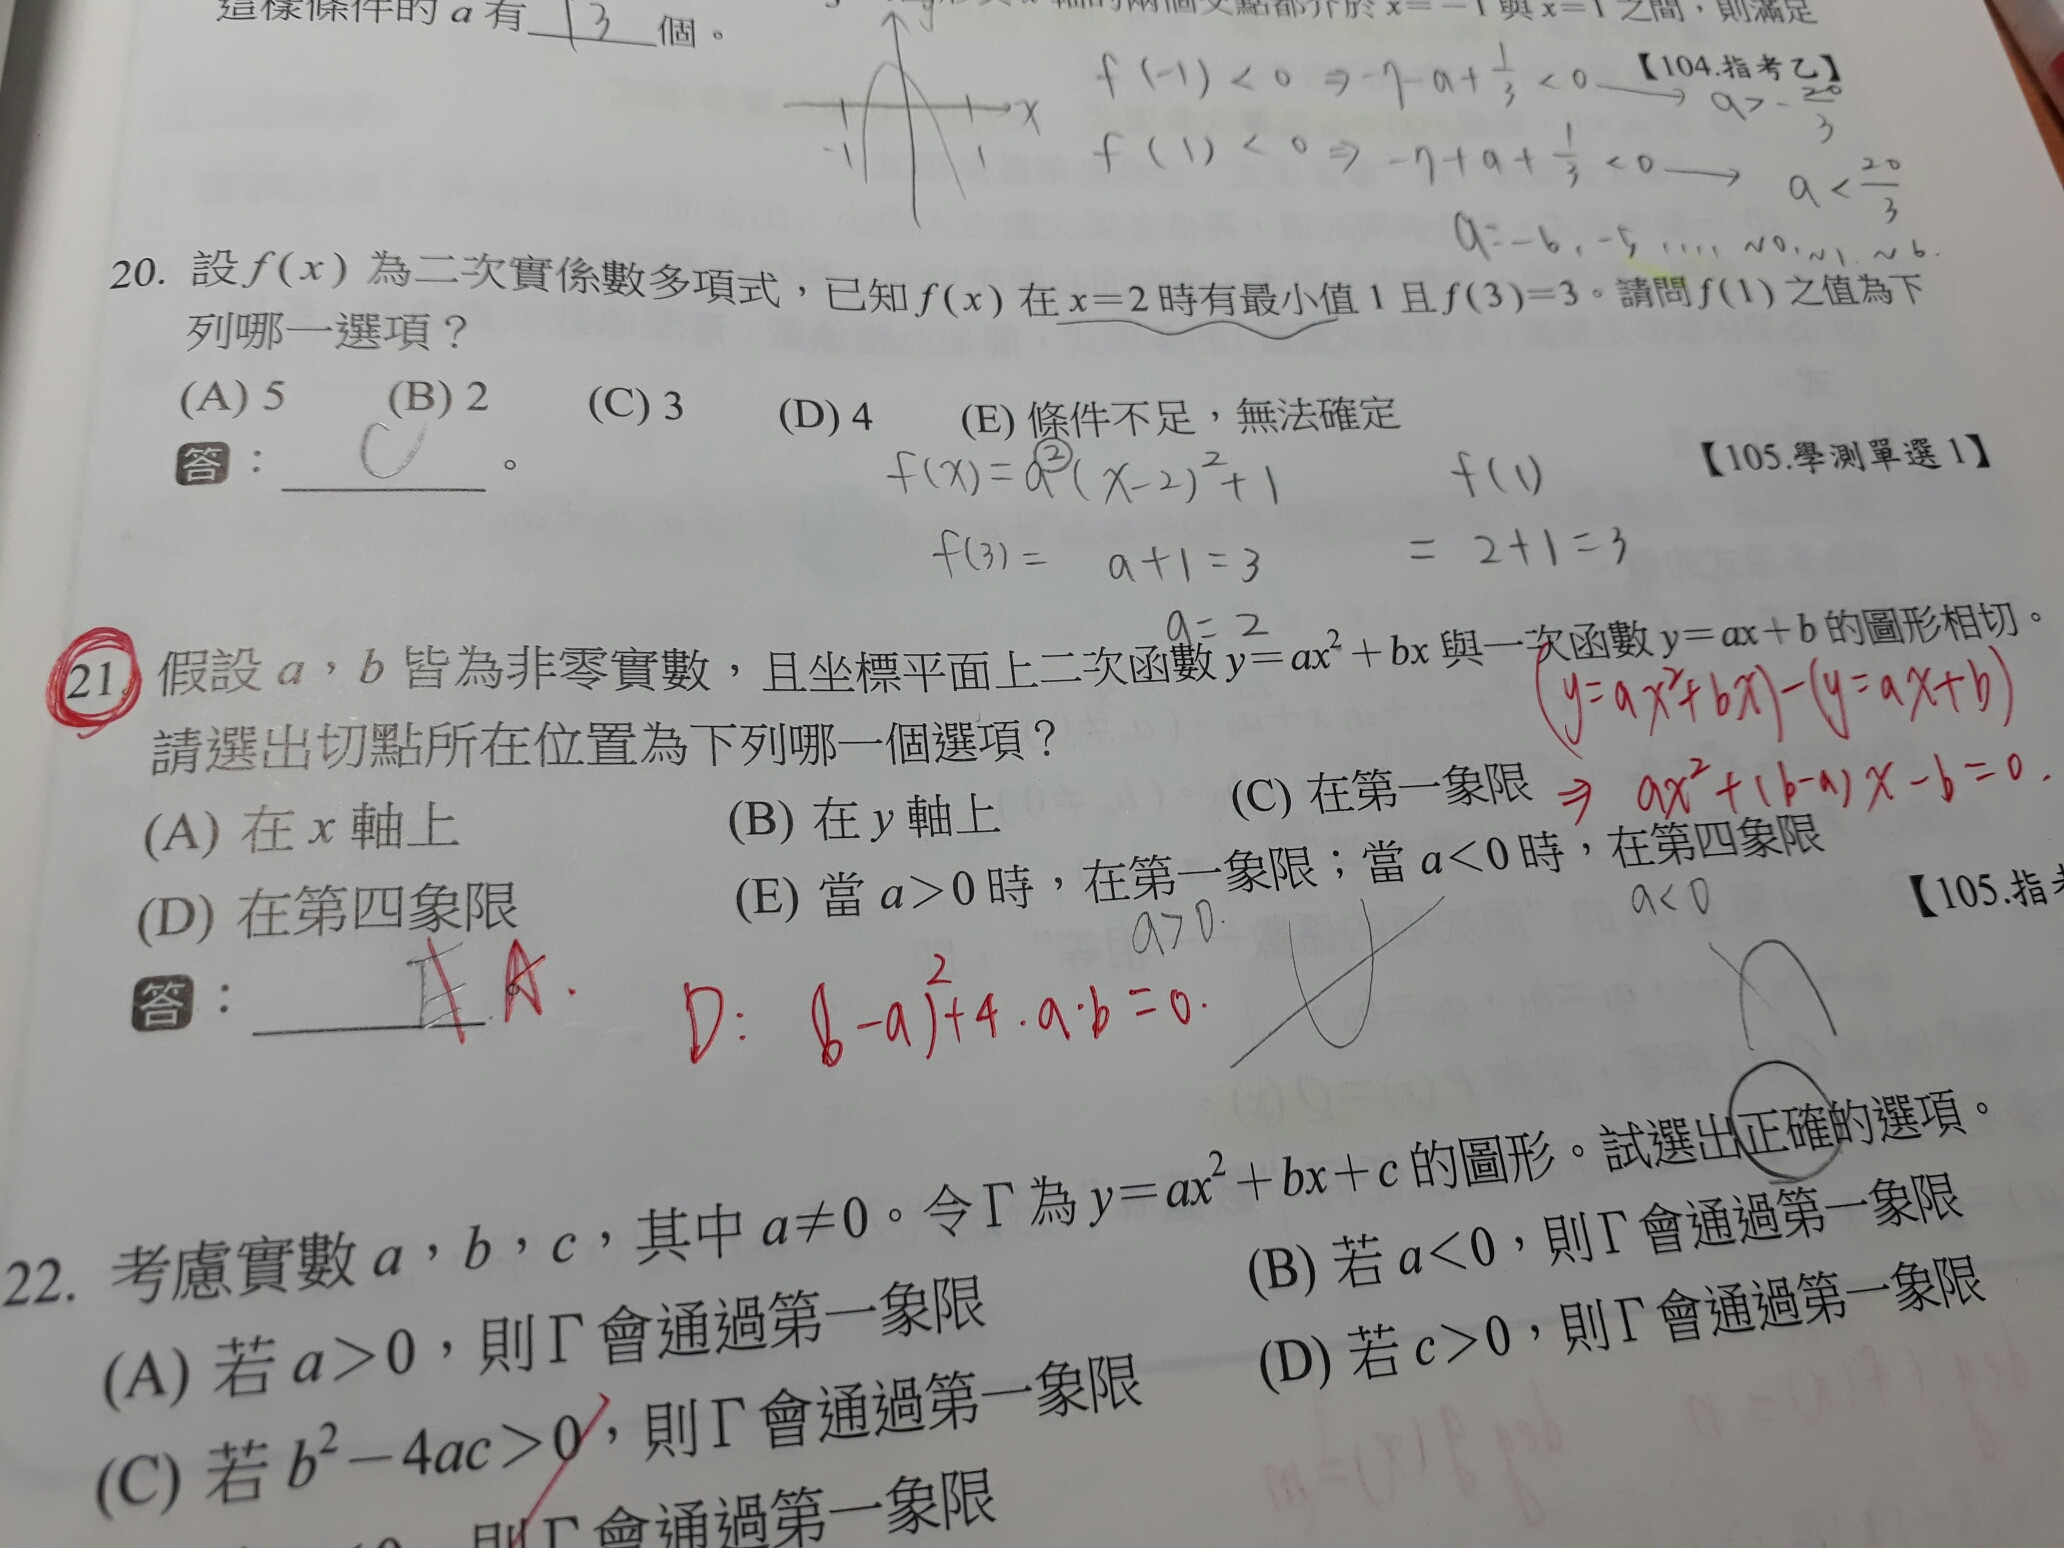 這樣條件的 a 有 13 個。
的兩個交點都介於 x=-1 與 x=1 之間，則滿足
【104.指考乙】
y
x
-1
1
f(-1) < 0 ⇒ -7-a+1/3 < 0 → a > -20/3
f(1) < 0 ⇒ -7+a+1/3 < 0 → a < 20/3
a=-6, -5, ...., ~0, ~1, ~6.
20. 設 f(x) 為二次實係數多項式，已知 f(x) 在 x=2 時有最小值 1 且 f(3)=3。請問 f(1) 之值為下
列哪一選項？
(A) 5 (B) 2 (C) 3 (D) 4 (E) 條件不足，無法確定
答： C 。
【105.學測單選 1】
f(x) = a② (x-2)²+1
f(1)
f(3) = a+1=3
= 2+1=3
a=2
21. 假設 a，b 皆為非零實數，且坐標平面上二次函數 y=ax²+bx 與一次函數 y=ax+b 的圖形相切。
(y=ax²+bx)-(y=ax+b)
請選出切點所在位置為下列哪一個選項？
⇒ ax²+(b-a)x-b=0.
(A) 在 x 軸上 (B) 在 y 軸上 (C) 在第一象限
(D) 在第四象限 (E) 當 a>0 時，在第一象限；當 a<0 時，在第四象限
【105.指考
a>0.
a<0
答： E A.
D: (b-a)²+4.a.b=0.
22. 考慮實數 a，b，c，其中 a≠0。令 Γ 為 y=ax²+bx+c 的圖形。試選出正確的選項。
(A) 若 a>0，則 Γ 會通過第一象限 (B) 若 a<0，則 Γ 會通過第一象限
(C) 若 b²-4ac>0，則 Γ 會通過第一象限 (D) 若 c>0，則 Γ 會通過第一象限
則 Γ 會通過第一象限